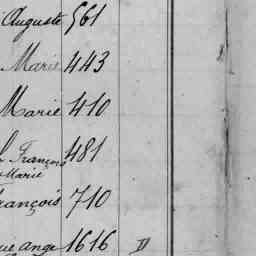 Auguste 561
Marie 443
Marie 410
François 481
Marie
François 710
ange 1616 D